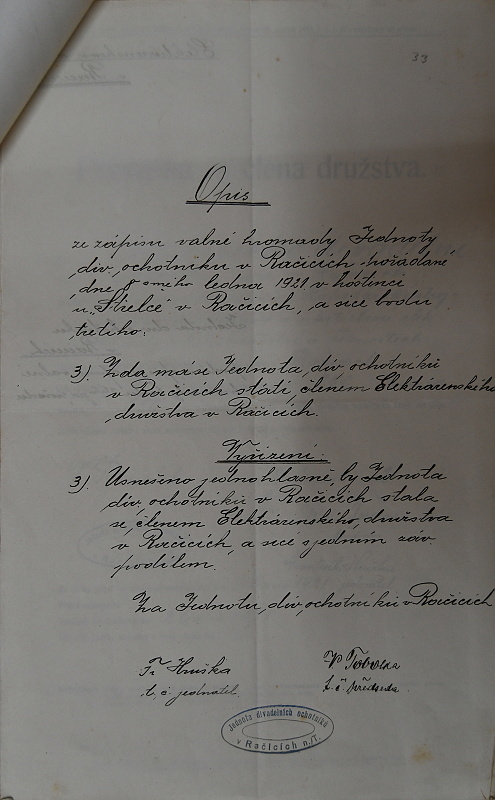 33
Opis
ze zápisu valné hromady Jednoty
div. ochotníků v Račicích pořádané
dne osmého ledna 1921 v hostinci
u „Střelce" v Račicích, a sice bodu
třetího:
3). Zda má se Jednota div. ochotníků
v Račicích státi členem Elektrárenského
družstva v Račicích.
Vyřízení:
3). Usnešeno jednohlasně, by Jednota
div. ochotníků v Račicích stala
se členem Elektrárenského družstva
v Račicích, a sice s jedním záv.
podílem.
Za Jednotu div. ochotníků v Račicích
Fr. Hruška
t. č. jednatel.
t. č. předseda
Jednota divadelních ochotníků
v Račicích n./T.
člena družstva.